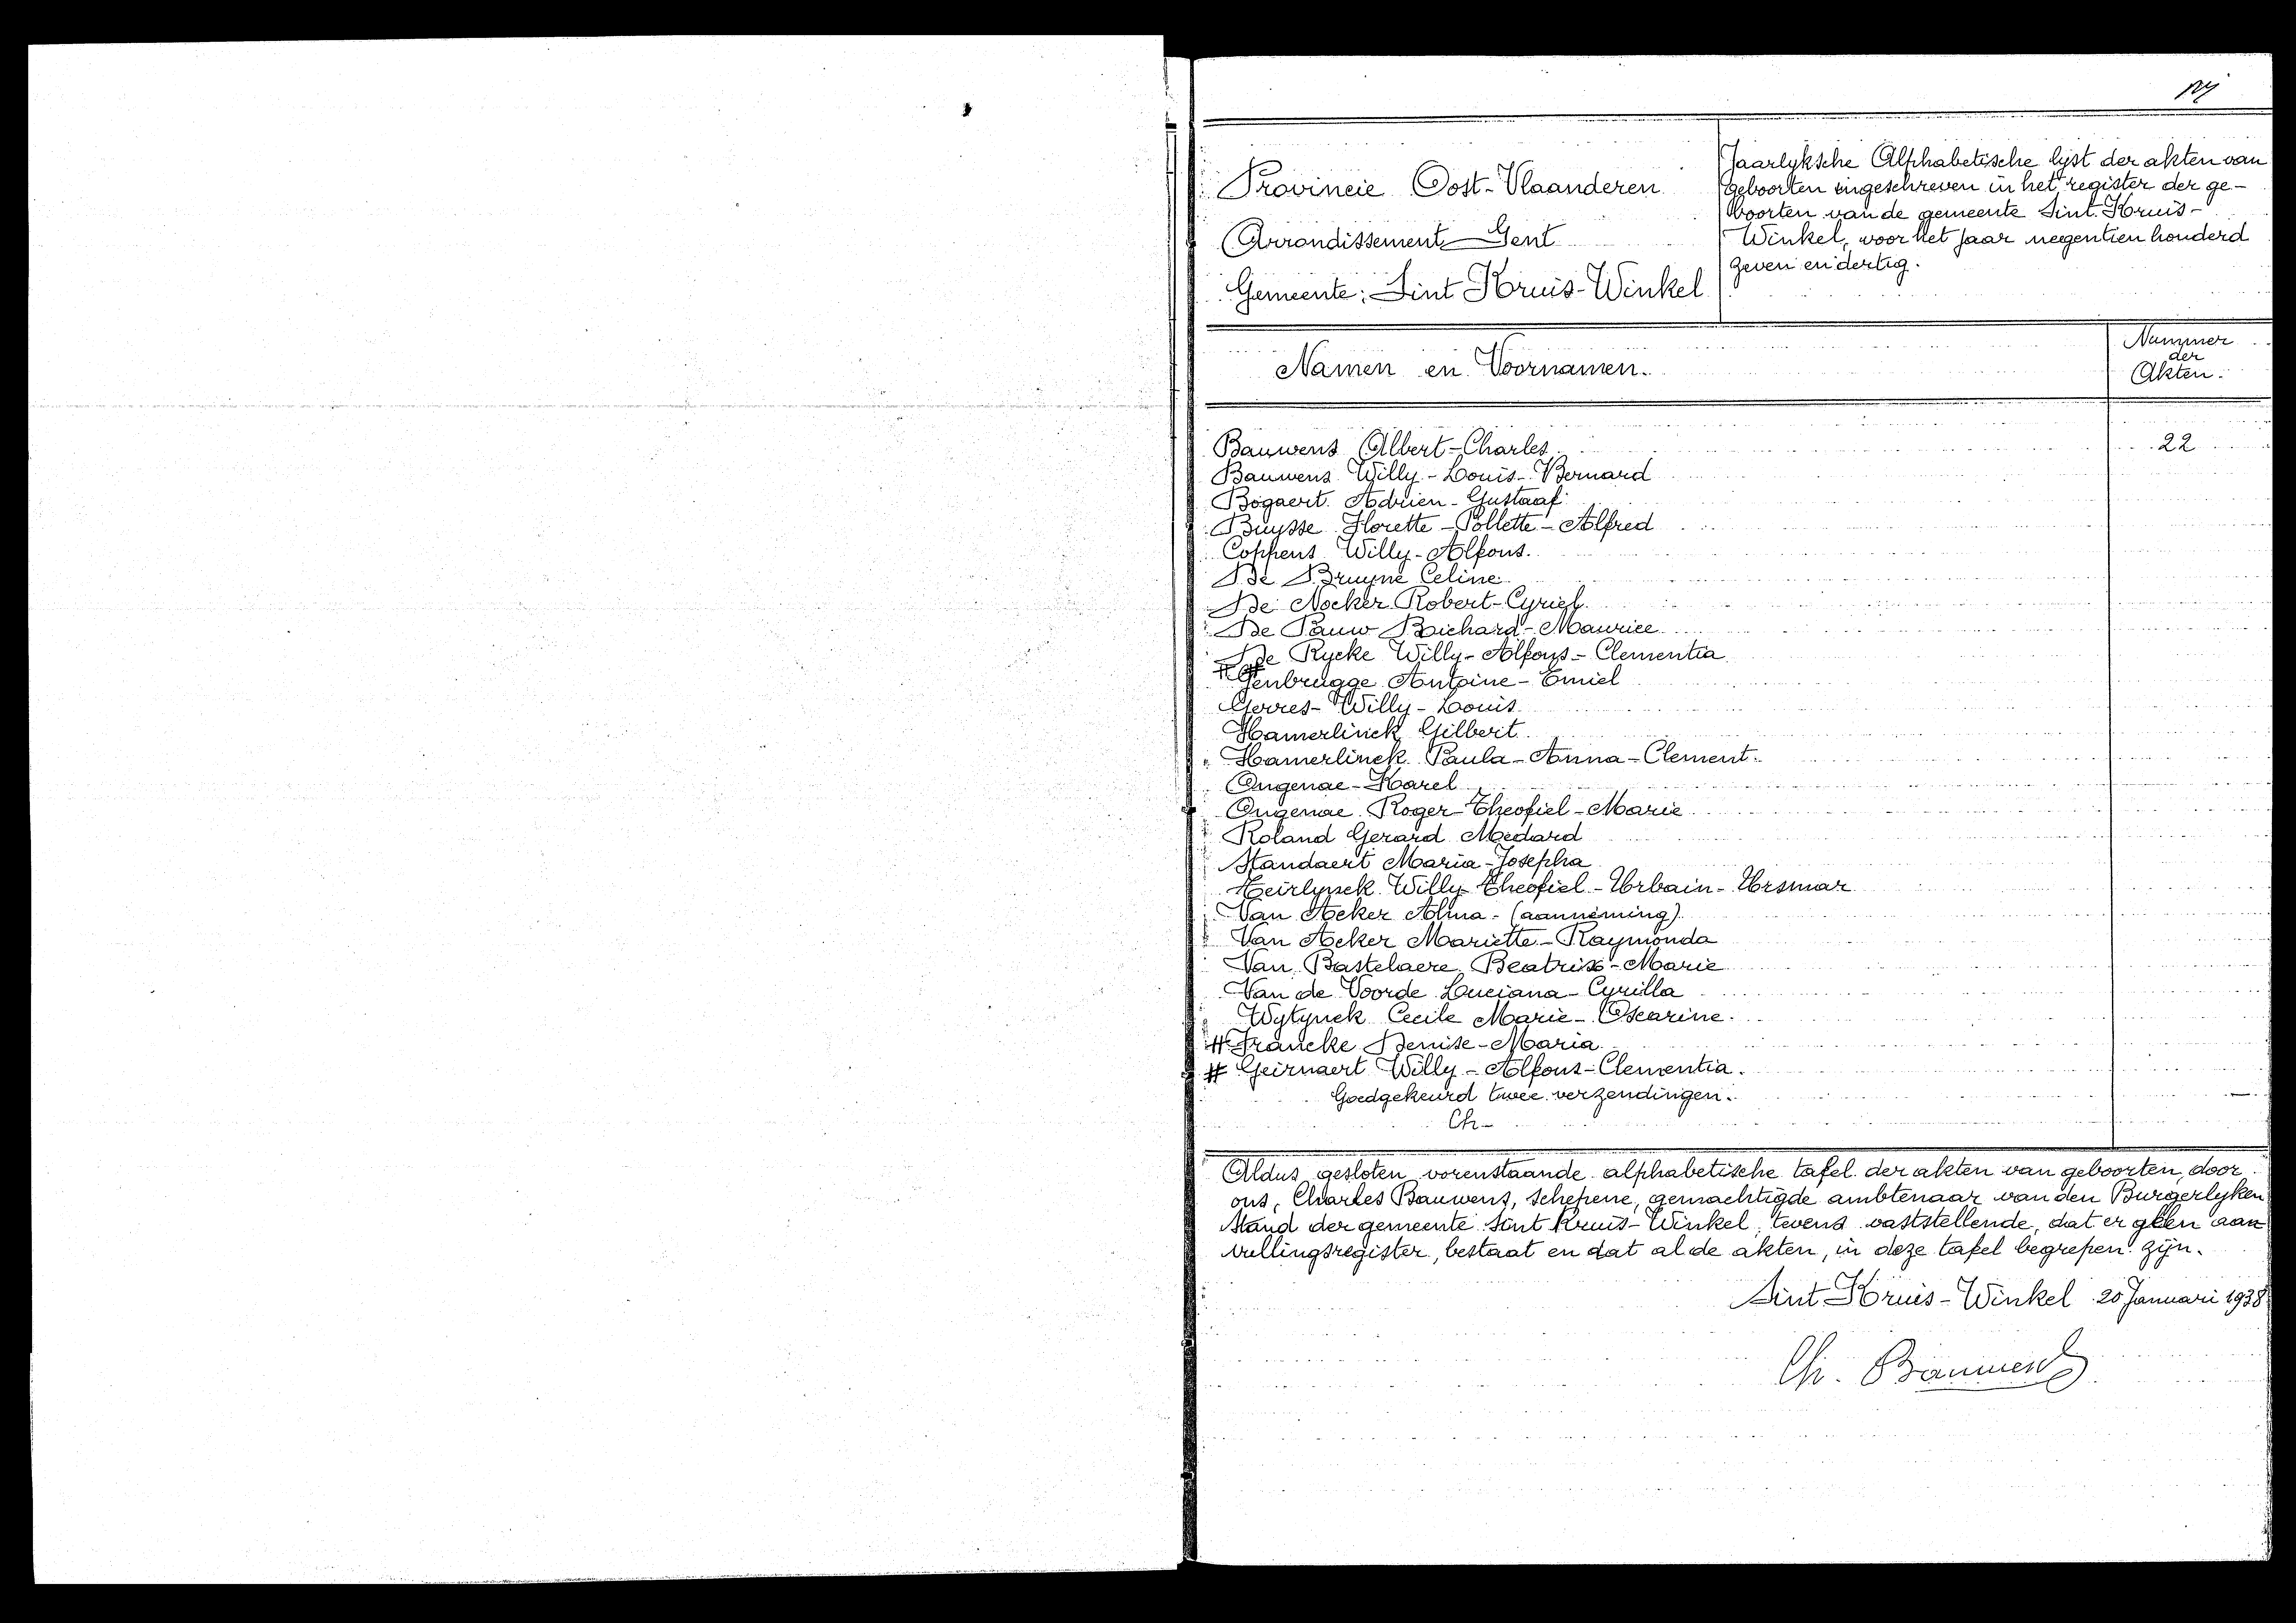 Provincie Oost-Vlaanderen
Arrondissement Gent
Gemeente: Sint Kruis-Winkel
Jaarlyksche Alphabetische lyst der akten van
geboorten ingeschreven in het register der ge-
boorten van de gemeente Sint-Kruis-
Winkel, voor het jaar negentien honderd
zeven en dertig.
Namen en Voornamen.
Nummer
der
Akten.
Bauwens Albert-Charles 22
Bauwens Willy-Louis-Bernard
Bogaert Adrien-Gustaaf
Buysse Florette-Pollette-Alfred
Coppens Willy-Alfons.
De Bruyne Celine
De Nocker Robert-Cyriel
De Pauw Richard-Maurice
De Rycke Willy-Alfons-Clementia
Genbrugge Antoine-Emiel
Gerres-Willy-Louis
Hamerlinck Gilbert
Hamerlinck Paula-Anna-Clement.
Ongenae-Karel
Ongenae Roger-Theofiel-Marie
Roland Gerard Medard
Standaert Maria-Josepha
Heirlynck Willy-Theofiel-Urbain-Ursmar
Van Acker Alma-(aanneming)
Van Acker Mariette-Raymonda
Van Bastelaere Beatrix-Marie
Van de Voorde Luciana-Cyrilla
Wytynck Cecile Marie-Oscarine.
# Francke Denise-Maria
# Geirnaert Willy-Alfons-Clementia.
Goedgekeurd twee verzendingen.
Ch-
Aldus gesloten vorenstaande alphabetische tafel der akten van geboorten, door
ons, Charles Bauwens, Schepene, gemachtigde ambtenaar van den Burgerlyken
Stand der gemeente Sint Kruis-Winkel, tevens vaststellende, dat er geen aan
vullingsregister, bestaat en dat al de akten, in deze tafel begrepen zijn.
Sint Kruis-Winkel 20 Januari 1938
Ch. Bauwens